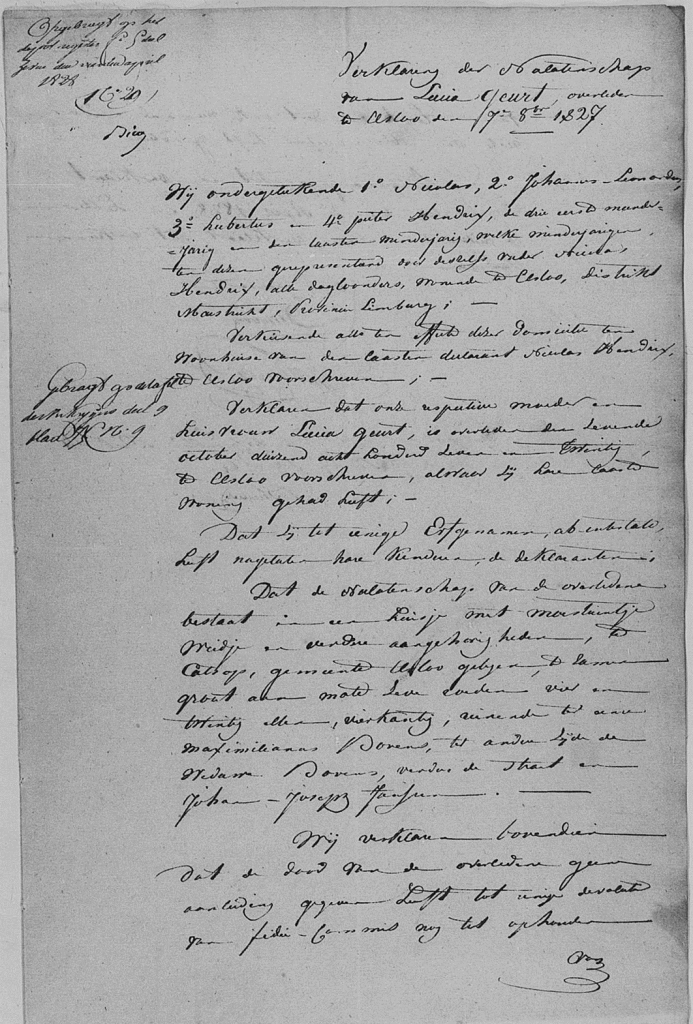 Verklaring der Nalatenschap
van Lucia Geurt, overleden
te Elsloo den 7n 8br 1827
Wij ondergetekende 1o Nicolas, 2o Johannes-Leonardus,
3o Hubertus en 4o peter Hendrix, de drie eerst meerder-
-jarig en den laasten minderjarig, welke minderjarigen
ten dezen gerepresenteerd door deszelfs vader Nicolas
Hendrix, alle dagloonders, wonende te Elsloo, district
Mastricht, Provincie Limburg; —
Verkiesende alle ten effecte dezer domicilie ten
woonhuise van den laasten declarant Nicolas Hendrix,
te Elsloo voorschreven; —
Verklaren dat onze respective moeder en
huisvrouw Lucia geurt, is overleden den sevende
october duizend acht honderd seven en twintig,
te Elsloo voorschreven, alwaer zij hare laaste
woning gehad heeft; —
Dat zij tot eenige Erfgenamen, ab intestato,
heeft nagelaten hare kinderen, de deklaranten;
Dat de Nalatenschap van de overledene
bestaat in een huisje met moestuintje
weidje en verdere aangehorigheden, te
Catsop, gemeente Elsloo gelegen, te samen
groot aen maat seve roeden vier en
twintig ellen, vierkantig, reinende ter eene
Maximilianus Bovens, ter andere zijde de
Weduwe Bovens, verders de straet en
Johan-Joseph Janssen. —
Wij verklaren bovendien
Dat de dood van de overledene geene
aanleiding gegeven heeft tot eenige devolutie
van fidei-Commis nog tot ophouden
van
1828
No 29